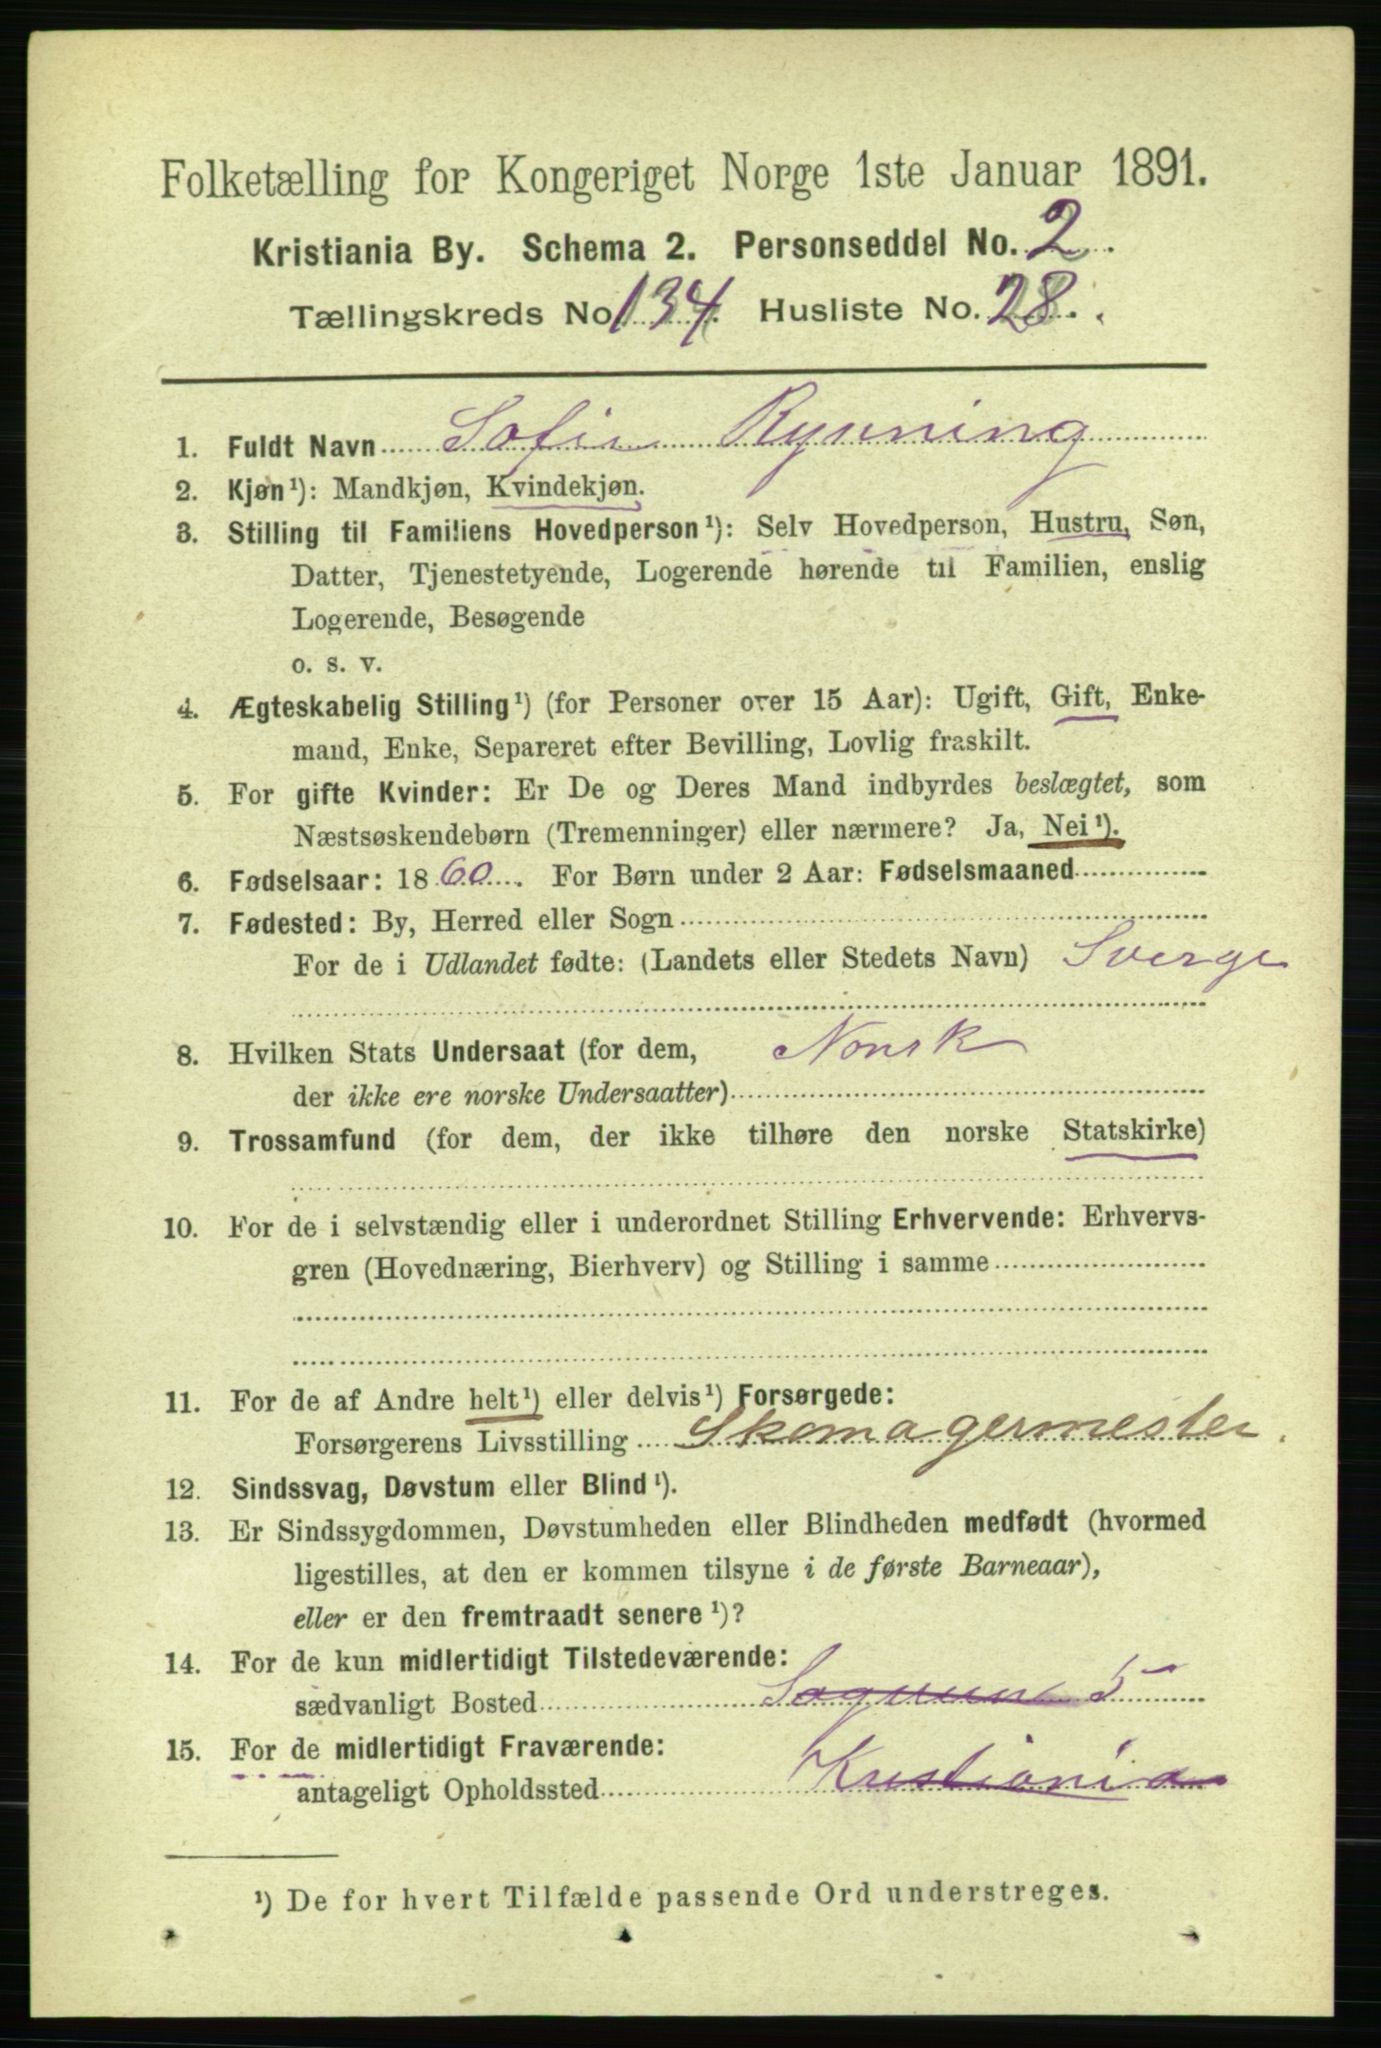 Folketælling for Kongeriget Norge 1ste Januar 1891.
Kristiania By. Schema 2. Personseddel No. 2.
Tællingskreds No. 134. Husliste No. 28.
1. Fuldt Navn Sofie Rynning
2. Kjøn¹): Mandkjøn, Kvindekjøn.
3. Stilling til Familiens Hovedperson¹): Selv Hovedperson, Hustru, Søn,
Datter, Tjenestetyende, Logerende hørende til Familien, enslig
Logerende, Besøgende
o. s. v.
4. Ægteskabelig Stilling¹) (for Personer over 15 Aar): Ugift, Gift, Enke-
mand, Enke, Separeret efter Bevilling, Lovlig fraskilt.
5. For gifte Kvinder: Er De og Deres Mand indbyrdes beslægtet, som
Næstsøskendebørn (Tremenninger) eller nærmere? Ja, Nei¹).
6. Fødselsaar: 1860. For Børn under 2 Aar: Fødselsmaaned
7. Fødested: By, Herred eller Sogn
For de i Udlandet fødte: (Landets eller Stedets Navn) Sverge
8. Hvilken Stats Undersaat (for dem, Norsk
der ikke ere norske Undersaatter)
9. Trossamfund (for dem, der ikke tilhøre den norske Statskirke)
10. For de i selvstændig eller i underordnet Stilling Erhvervende: Erhvervs-
gren (Hovednæring, Bierhverv) og Stilling i samme
11. For de af Andre helt¹) eller delvis¹) Forsørgede:
Forsørgerens Livsstilling Skomagermester.
12. Sindssvag, Døvstum eller Blind¹).
13. Er Sindssygdommen, Døvstumheden eller Blindheden medfødt (hvormed
ligestilles, at den er kommen tilsyne i de første Barneaar),
eller er den fremtraadt senere¹)?
14. For de kun midlertidigt Tilstedeværende:
sædvanligt Bosted 5
15. For de midlertidigt Fraværende:
antageligt Opholdssted Kristiania
¹) De for hvert Tilfælde passende Ord understreges.